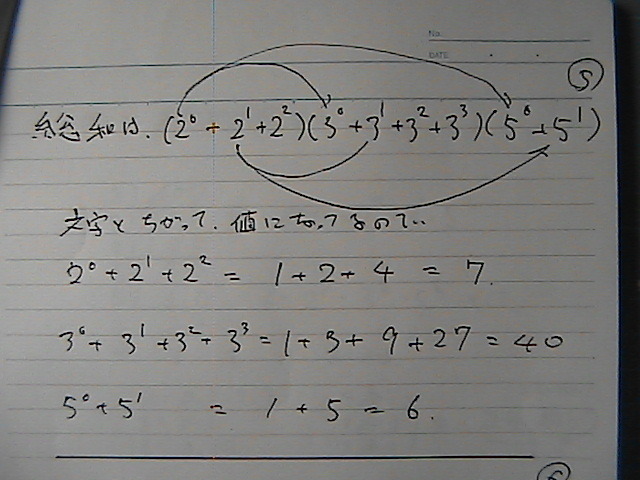 No.
DATE
⑤
総和は、(2⁰+2¹+2²)(3⁰+3¹+3²+3³)(5⁰+5¹)
文字とちがって、値になってるので‥
2⁰+2¹+2² = 1+2+4 = 7.
3⁰+3¹+3²+3³=1+3+9+27=40
5⁰+5¹ = 1+5=6.